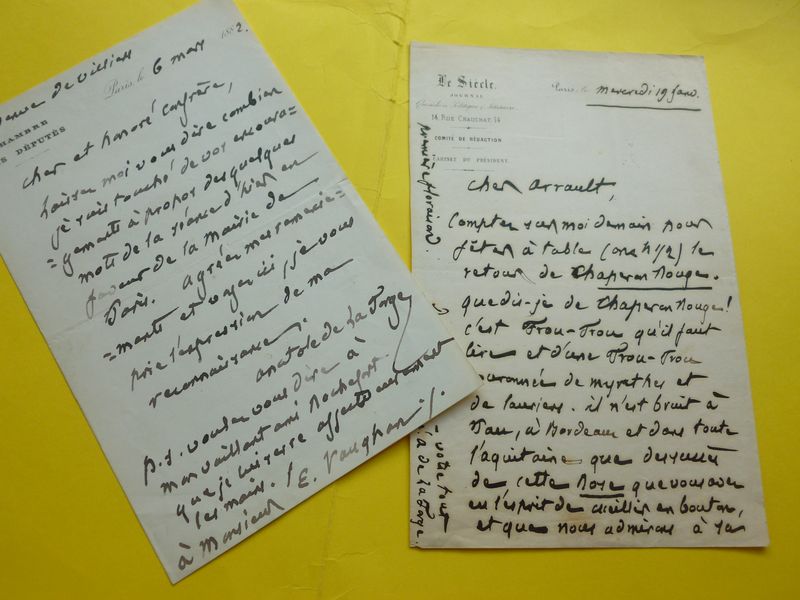 de villiers
Paris, le 6 mars 1882.
CHAMBRE
DES DÉPUTÉS
Cher et honoré Confrère,
Laissez moi vous dire combien
je suis touché de vos encoura=
=gements à propos des quelques
mots de la séance d'hier en
faveur de la Mairie de
Paris. agréez mes remercie=
=ments et voyez ici, je vous
prie l'expression de ma
reconnaissance.
anatole de La Forge
p.s. voulez vous dire à
mon vaillant ami Rochefort
que je lui serre affectueusement
les mains.
à Monsieur E. Vaughan
Le Siècle.
JOURNAL
14, RUE CHAUCHAT, 14
COMITÉ DE RÉDACTION
CABINET DU PRÉSIDENT.
Paris, le mercredi 19 Janv.
Cher Arrault,
Comptez sur moi demain pour
fêter à table (onze h 1/2) le
retour de Chaperon Rouge.
que dis-je de Chaperon Rouge!
c'est Frou-Frou qu'il faut
lire et d'une Frou-Frou
couronnée de myrthes et
de lauriers. il n'est bruit à
Pau, à Bordeaux et dans toute
l'aquitaine que des succès
de cette Rose que vous avez
eu l'esprit de cueillir en bouton,
et que nous admirons à sa
première floraison.
votre tout
a de la Forge.